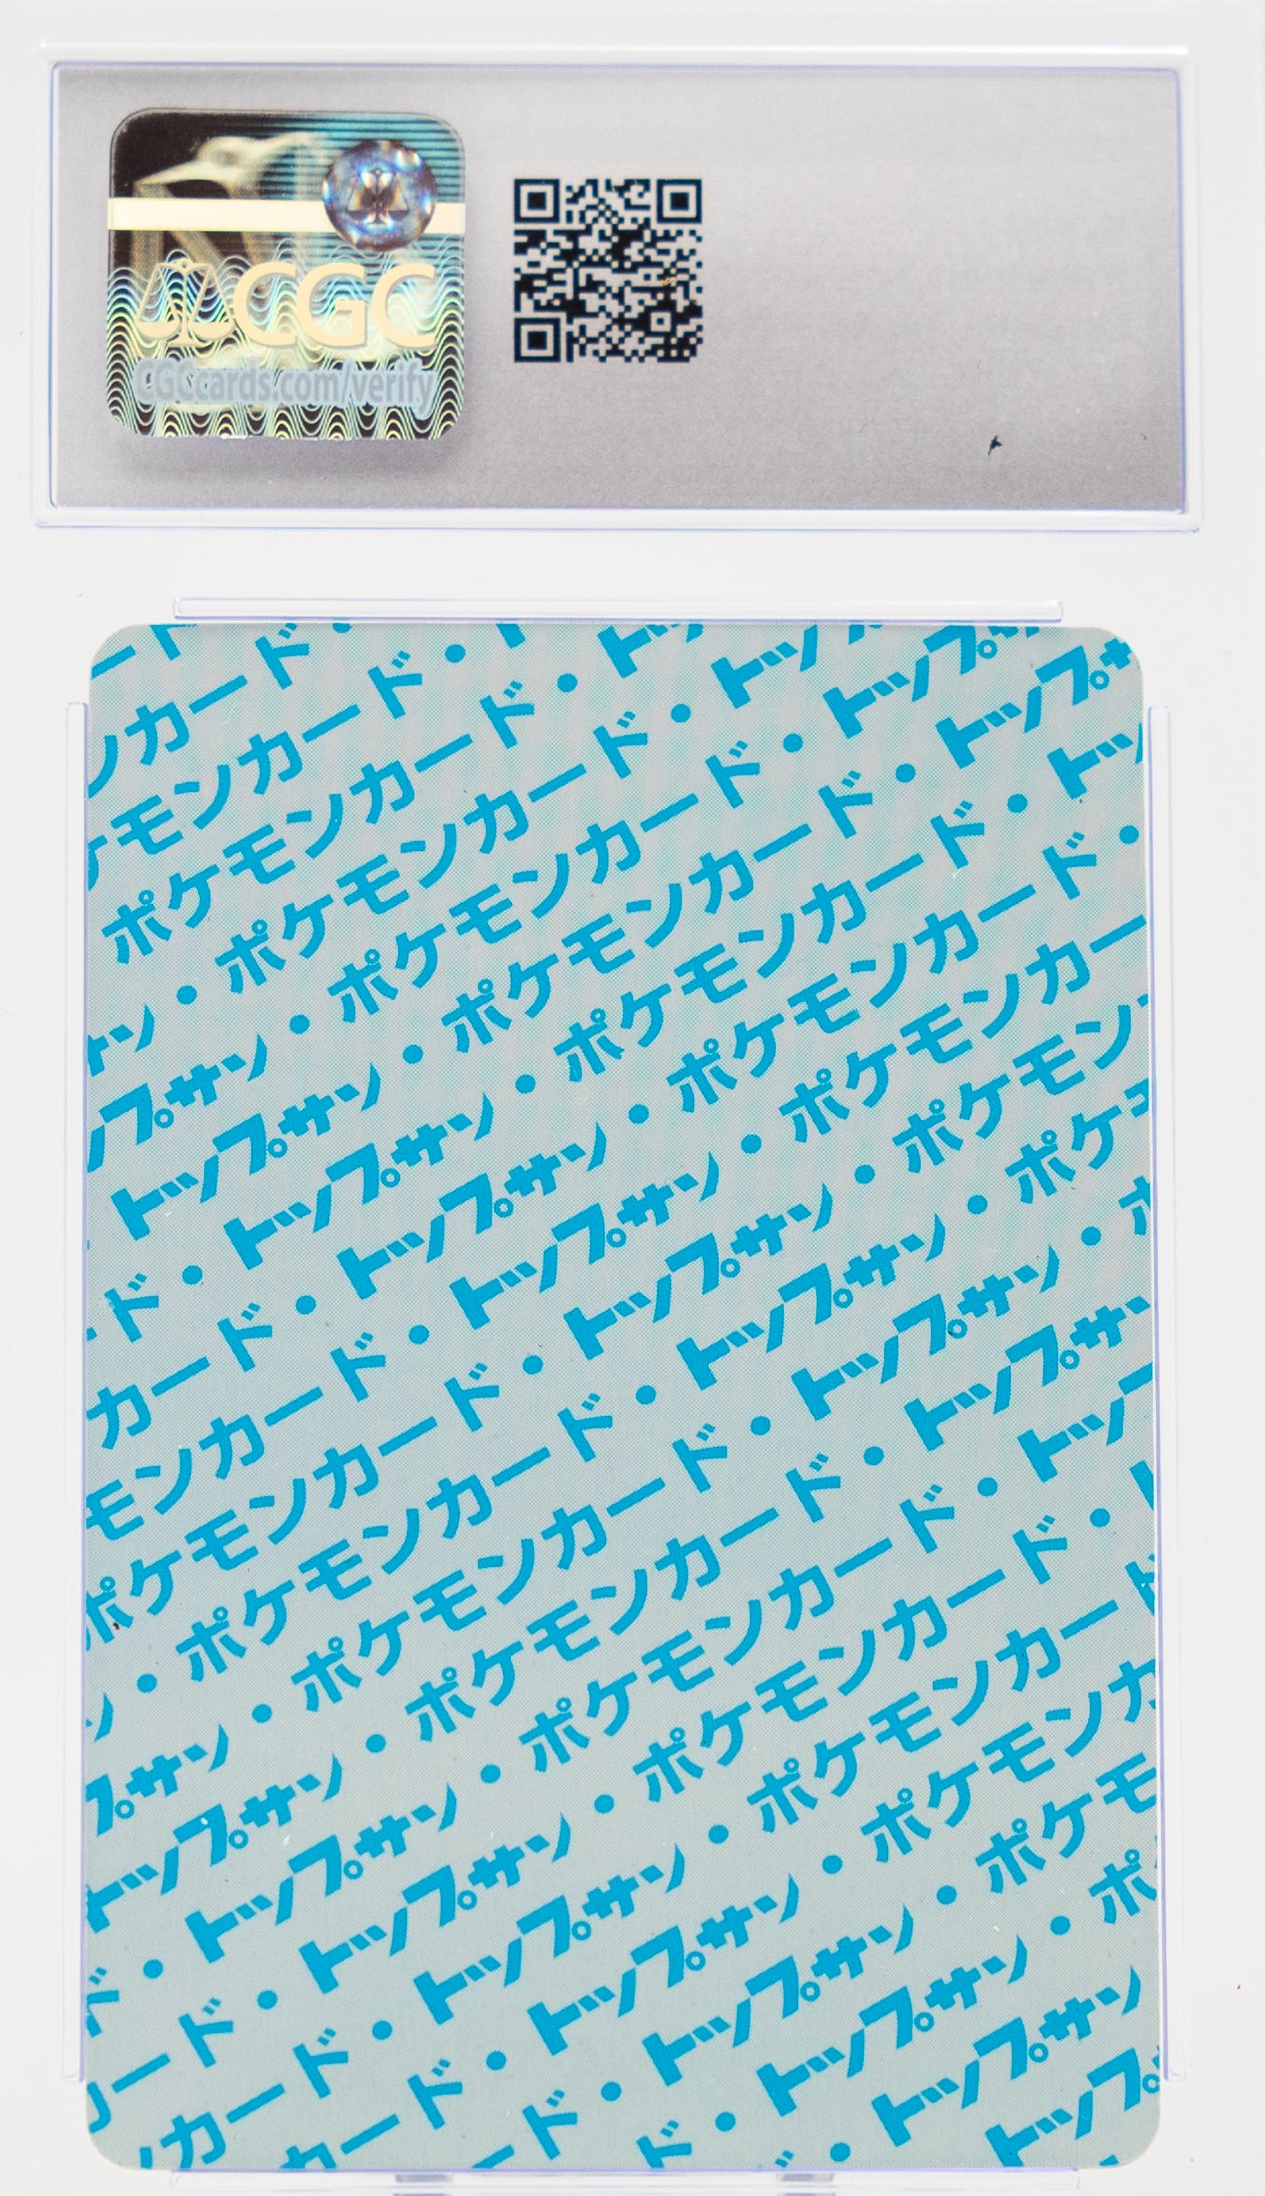 ード
ンカード・
ケモンカード・ト
ポケモンカード・トッ
ン・ポケモンカード・トップ
サン・ポケモンカード・トップ
ップサン・ポケモンカード・トップサ
トップサン・ポケモンカード・トッ
ド・トップサン・ポケモンカード・
カード・トップサン・ポケモンカー
モンカード・トップサン・ポケモン
ポケモンカード・トップサン・ポケ
ン・ポケモンカード・トップサン・ポ
プサン・ポケモンカード・トップサ
トップサン・ポケモンカード・トッ
ド・トップサン・ポケモンカード・ト
ード・トップサン・ポケモンカード
カード・トップサン・ポケモンカ
カード・トップサン・ポケモ
ード・トップサン・ポ
ド・トップサン
・トップ
CGC
CGCcards.com/verify